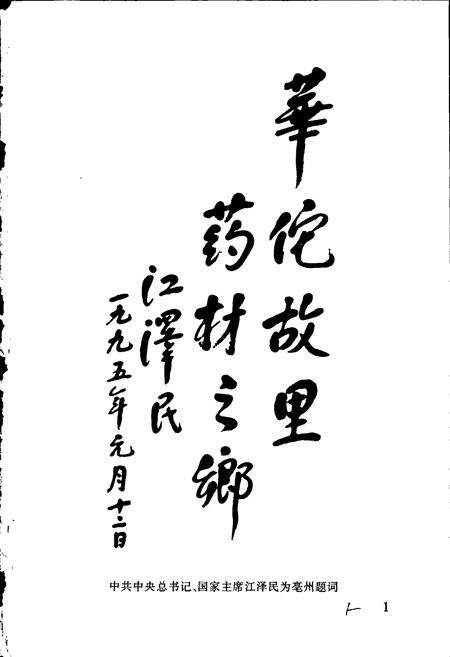 華佗故里
药材之鄉
江澤民
一九九五年元月十二日
中共中央总书记、国家主席江泽民为亳州题词
1